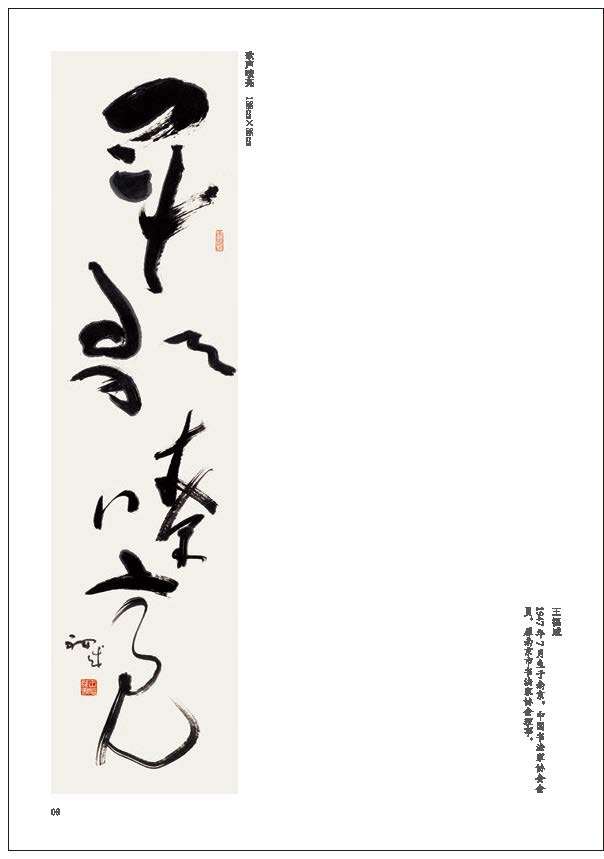 军歌嘹亮
歌声嘹亮
王福
1947年7月生于南京。中国书法家协会会
员，南京市书法家协会理事。